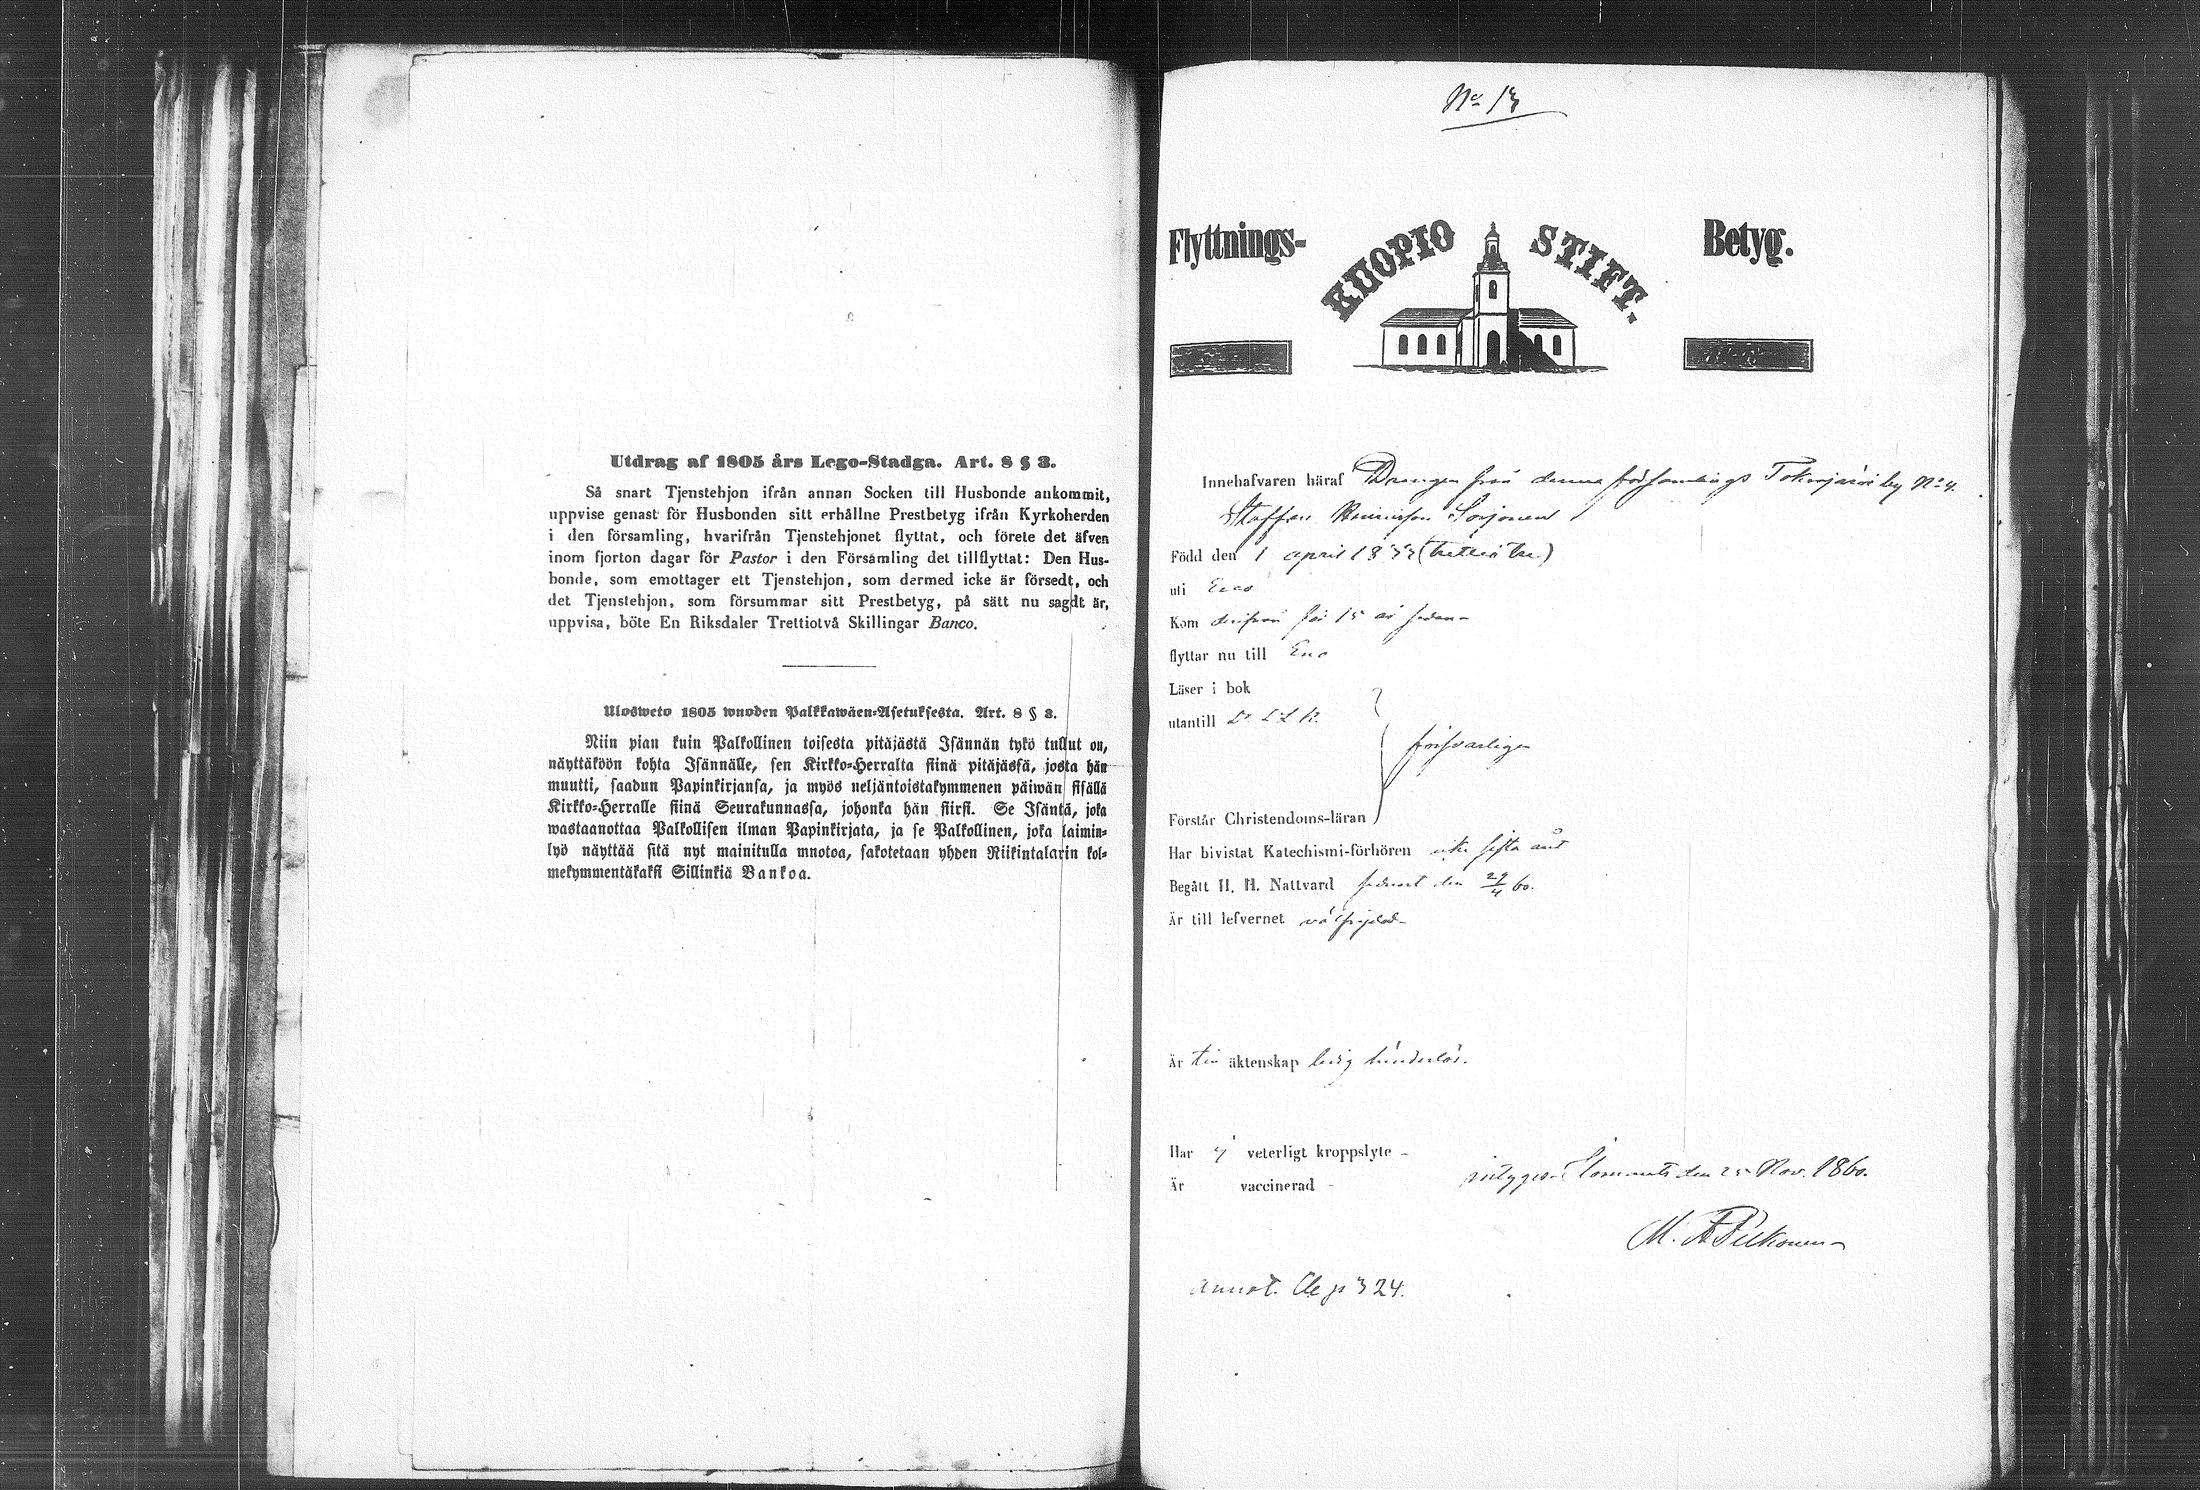 Utdrag af 1805 års Lego-Stadga. Art. 8 § 3.
Så snart Tjenstehjon ifrån annan Socken till Husbonde ankommit,
uppvise genast för Husbonden sitt erhållne Prestbetyg ifrån Kyrkoherden
i den församling, hvarifrån Tjenstehjonet flyttat, och förete det äfven
inom fjorton dagar för Pastor i den Församling det tillflyttat: Den Hus-
bonde, som emottager ett Tjenstehjon, som dermed icke är försedt, och
det Tjenstehjon, som försummar sitt Prestbetyg, på sätt nu sagdt är,
uppvisa, böte En Riksdaler Trettiotvå Skillingar Banco.
Ulosweto 1805 wuoden Palkkawäen-Asetuksesta. Art. 8 § 3.
Niin pian kuin Palkollinen toisesta pitäjästä Isännän tykö tullut on,
näyttäköön kohta Isännälle, sen Kirkko-Herralta siinä pitäjässä, josta hän
muutti, saadun Papinkirjansa, ja myös neljäntoistakymmenen päiwän sisällä
Kirkko-Herralle siinä Seurakunnassa, johonka hän siirsi. Se Isäntä, joka
wastaanottaa Palkollisen ilman Papinkirjata, ja se Palkollinen, joka laimin-
lyö näyttää sitä nyt mainitulla muotoa, sakotetaan yhden Riikintalarin kol-
mekymmentäkaksi Sillinkiä Bankoa.
No 13
Flyttnings- KUOPIO STIFT. Betyg.
Innehafvaren häraf Drengen från denna församlings Tokrajärvi by No 4.
Staffan Sorjonen
Född den 1 april 1833 (trettio tre)
uti Eno
Kom för 15 år sedan
flyttar nu till Eno
Läser i bok
utantill
försvarligen
Förstår Christendoms-läran
Har bivistat Katechismi-förhören sista året
Begått H. H. Nattvard senast den 29/4 60.
Är till lefvernet välfrejdad
Är till äktenskap ledig hinderlös.
Har ej veterligt kroppslyte
Är vaccinerad
intygas Ilomants den 25 Nov. 1860.
M. A Pelkonen
annot. p 324.